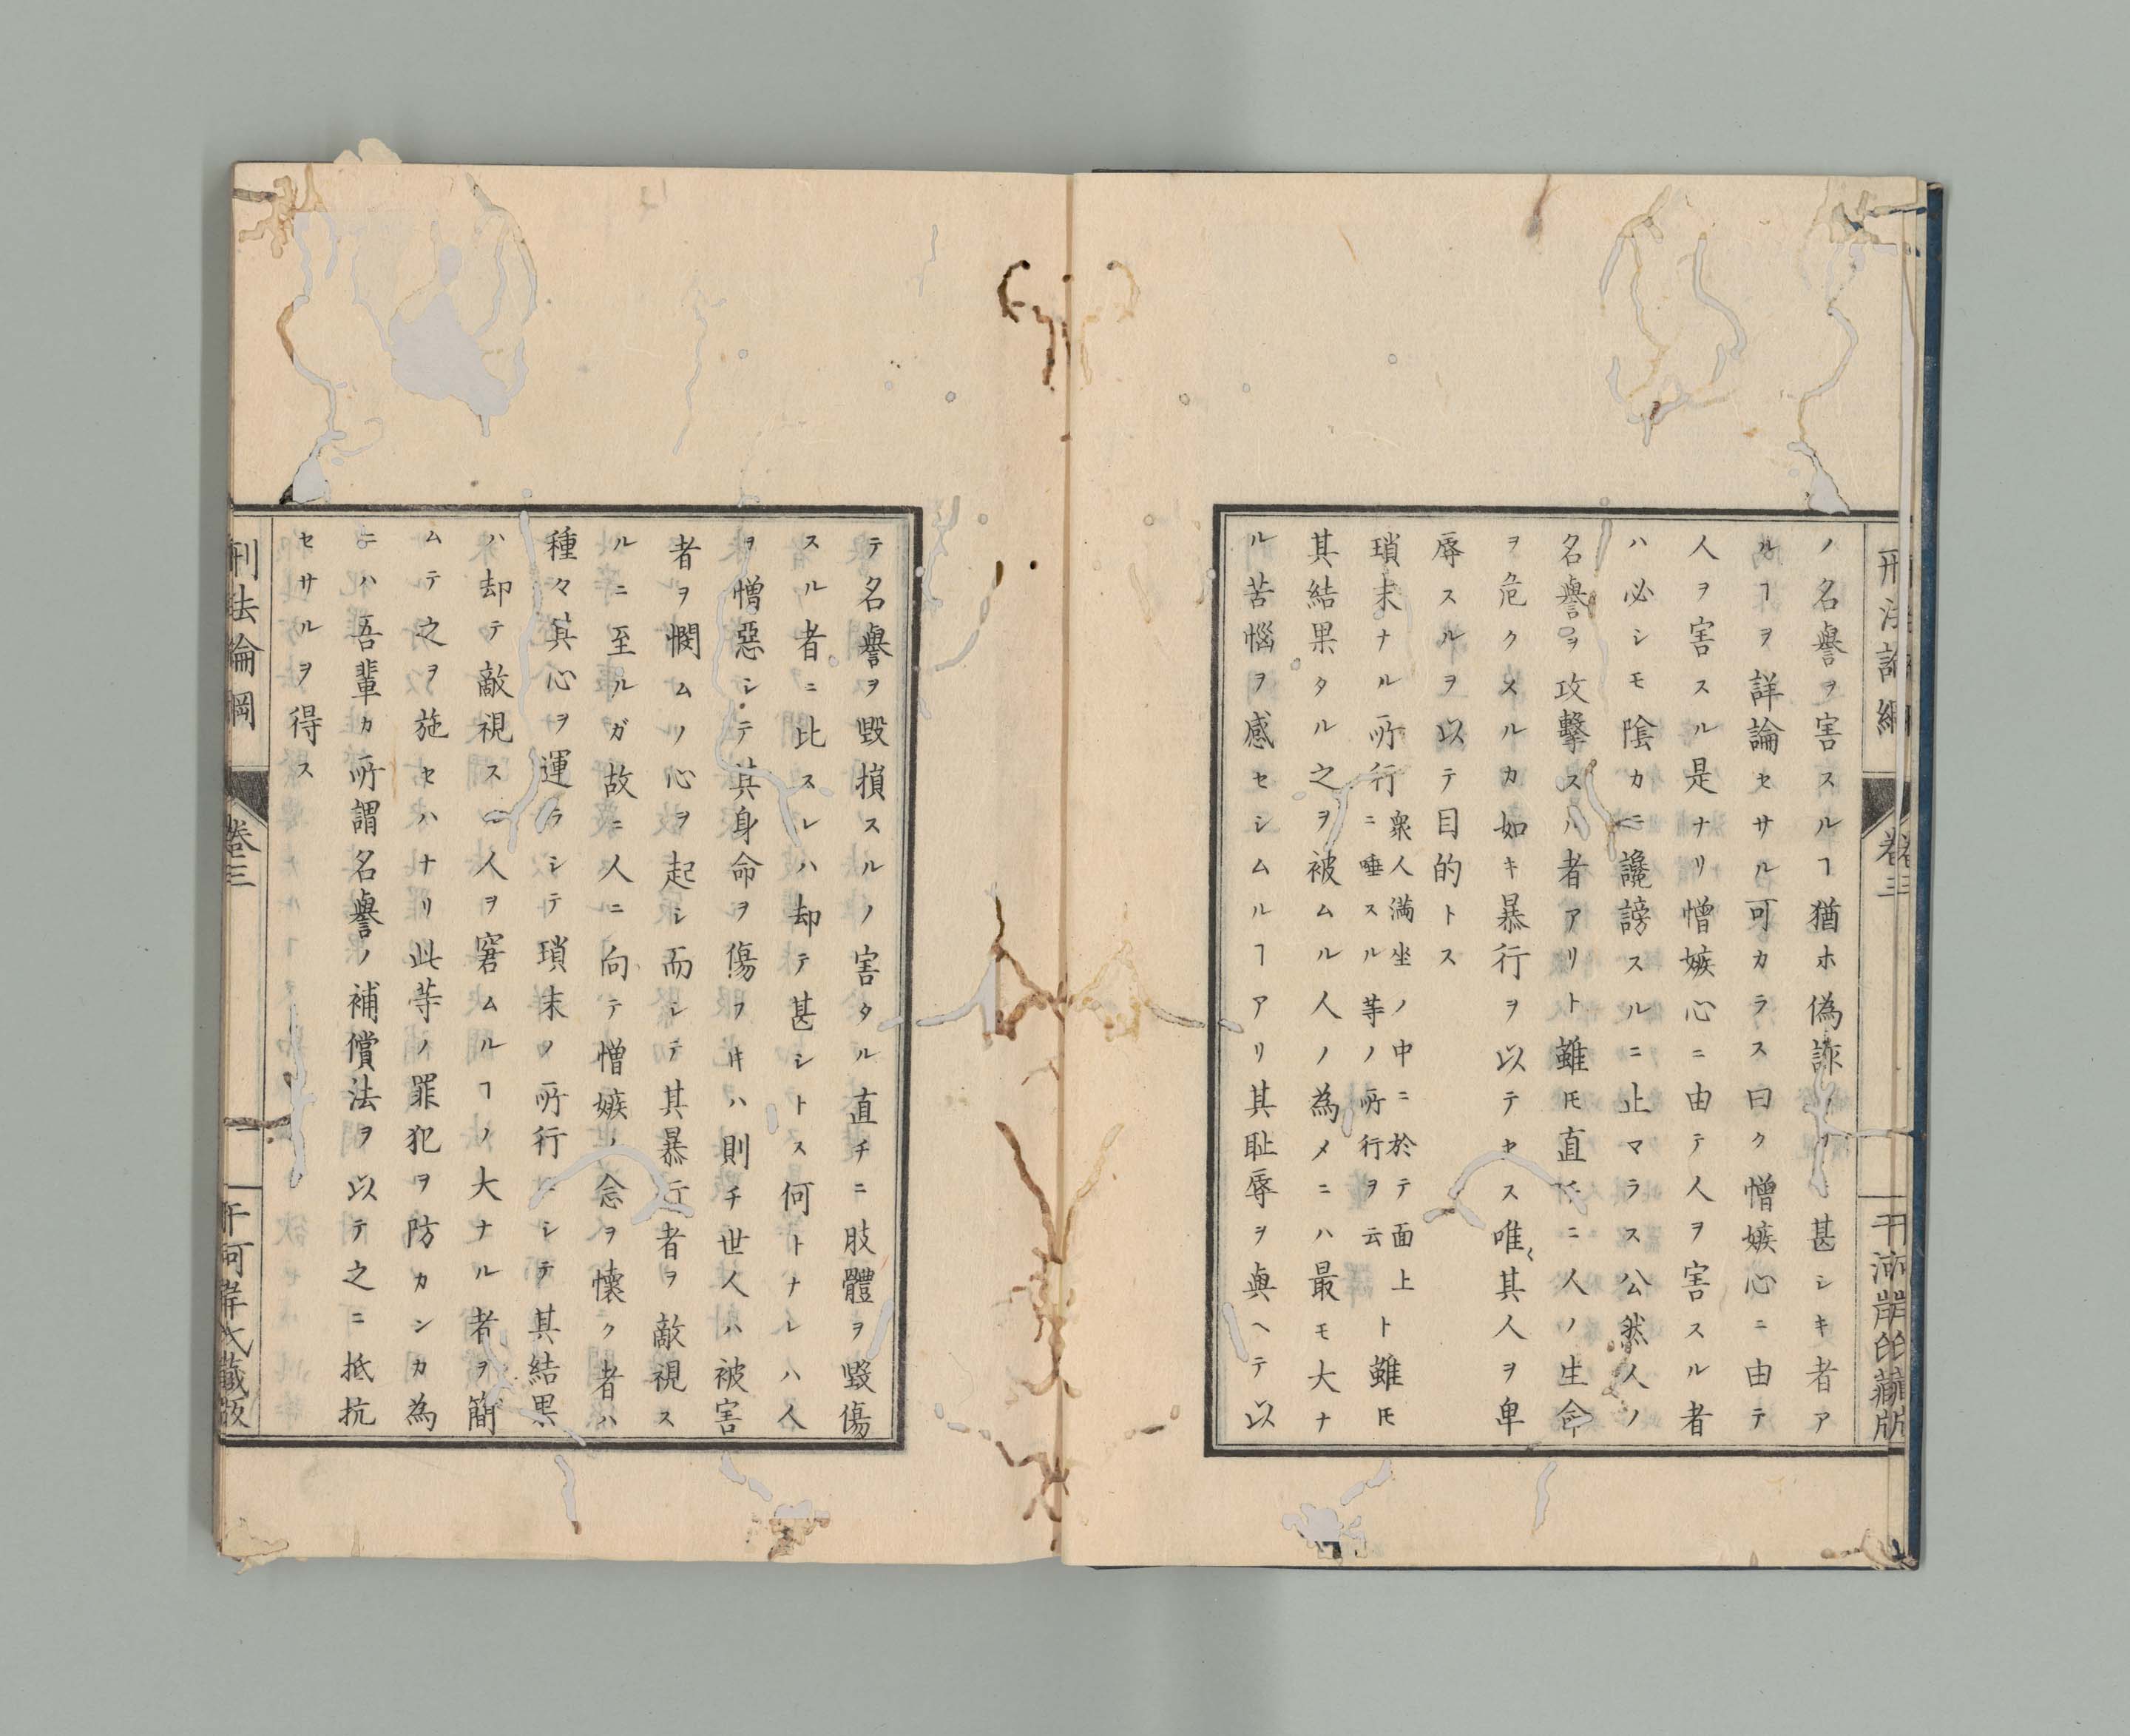 ノ名譽ヲ害スルヿ猶ホ偽詐ノ甚シキ者ア
ルヿヲ詳論セサル可カラス曰ク憎嫉心ニ由テ
人ヲ害スル是ナリ憎嫉心ニ由テ人ヲ害スル者
ハ必シモ陰カニ讒謗スルニ止マラス公然人ノ
名譽ヲ攻擊スル者アリト雖𪜈直チニ人ノ生命
ヲ危クスルカ如キ暴行ヲ以テセス唯〻其人ヲ卑
辱スルヲ以テ目的トス
瑣末ナル所行
衆人滿坐ノ中ニ於テ面上
ニ唾スル等ノ所行ヲ云
ト雖𪜈
其結果タル之ヲ被ムル人ノ為メニハ最モ大ナ
ル苦惱ヲ感セシムルヿアリ其耻辱ヲ與ヘテ以
テ名譽ヲ毀損スルノ害タル直チニ肢體ヲ毀傷
スル者ニ比スレハ却テ甚シトス何トナレハ人
ヲ憎惡シテ其身命ヲ傷フ𪜀ハ則チ世人ハ被害
者ヲ憫ムノ心ヲ起シ而シテ其暴行者ヲ敵視ス
ルニ至ルガ故ニ人ニ向テ憎嫉ノ念ヲ懷ク者ハ
種々其心ヲ運ラシテ瑣末ノ所行ニシテ其結果
ハ却テ敵視スル人ヲ窘ムルヿノ大ナル者ヲ簡
ムテ之ヲ施セハナリ此等ノ罪犯ヲ防カンカ為
ニハ吾輩カ所謂名譽ノ補償法ヲ以テ之ニ抵抗
セサルヲ得ス
刑法論綱
卷三